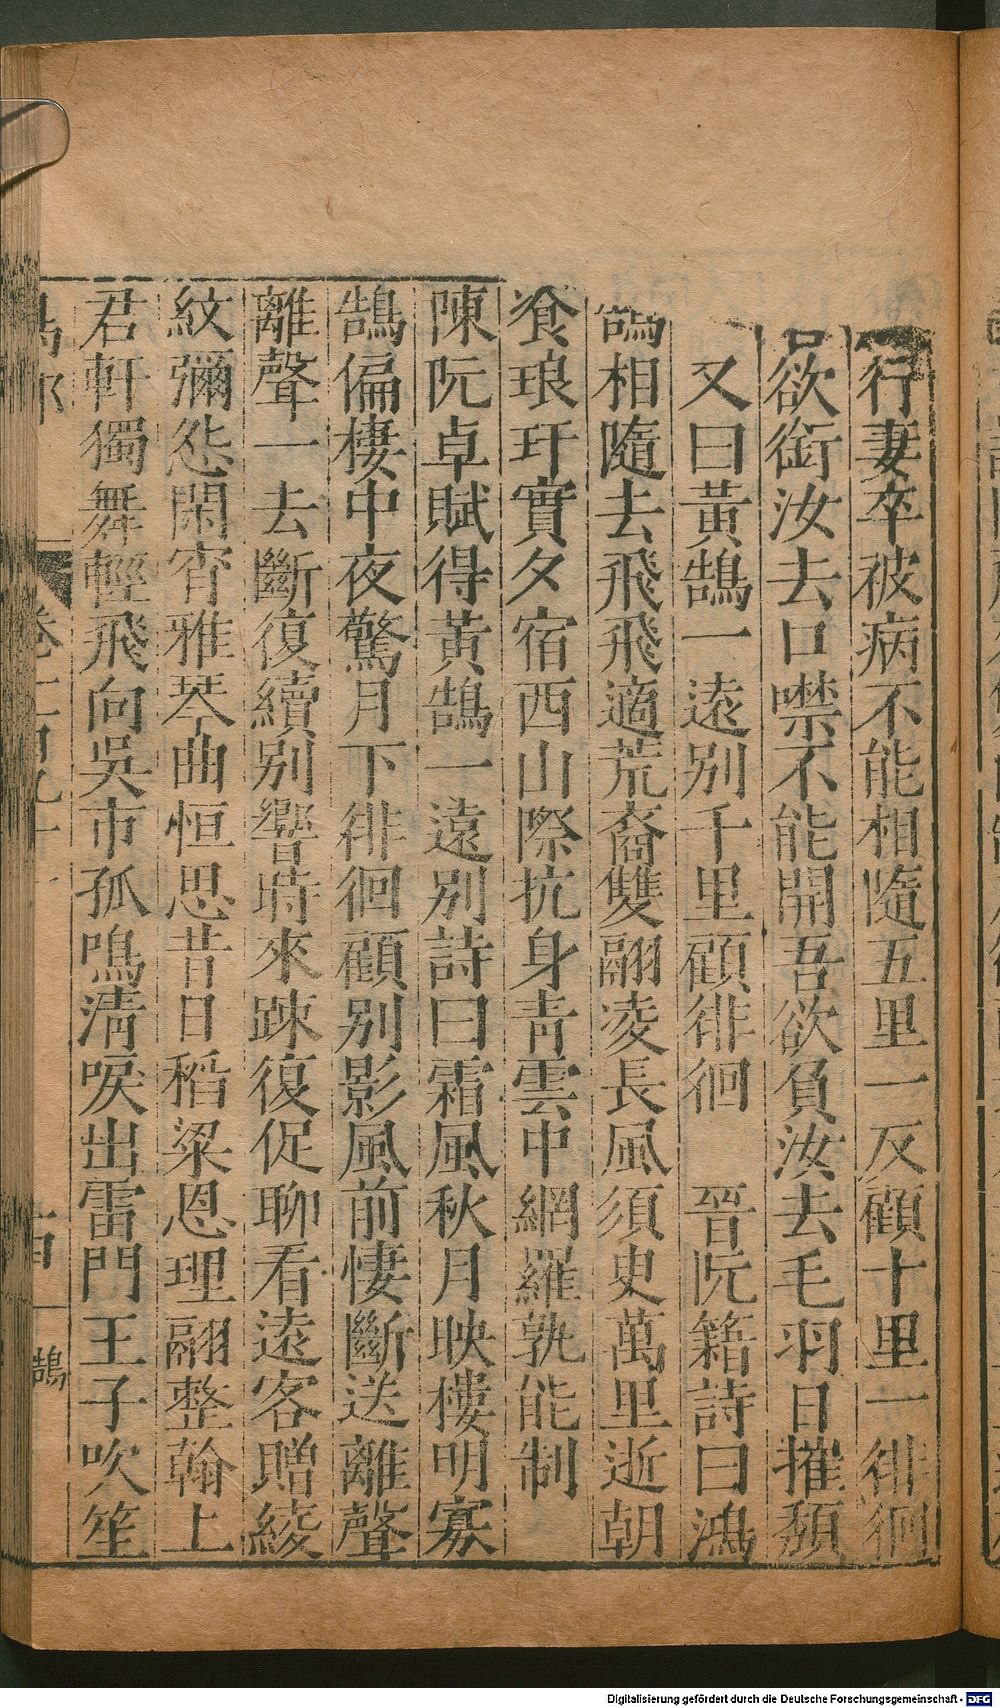 行妻卒被病不能相隨五里一反顧十里一徘徊
吾欲銜汝去口噤不能開吾欲負汝去毛羽日摧頽
又曰黃鵠一遠別千里顧徘徊 晉阮籍詩曰鴻
鵠相隨去飛飛適荒裔雙翮凌長風須臾萬里逝朝
飡琅玕實夕宿西山際抗身青雲中網羅孰能制
陳阮卓賦得黃鵠一遠別詩曰霜風秋月映樓明寡
鵠偏棲中夜驚月下徘徊顧別影風前悽斷送離聲
離聲一去斷復續別響時來疎復促聊看遠客贈綾
紋彌怨閑宵雅琴曲恒思昔日稻粱恩理翮整翰上
君軒獨舞輕飛向吳市孤鳴清唳出雷門王子吹笙
鳥部
卷
鵠
Digitalisierung gefördert durch die Deutsche Forschungsgemeinschaft - DFG